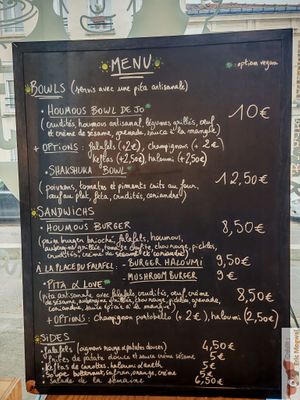 MENU
option vegan
BOWLS (servis avec une pita artisanale)
• HOUMOUS BOWL DE JO 10€
(crudités, houmous artisanal, légumes grillés, oeuf
et crème de sésame, grenade, sauce à la mangue)
+ OPTIONS: falafels (+2€), champignon (+2€)
Keftas (+2,50€), haloumi (+2,50€)
• SHAKSHUKA BOWL 12,50€
(poivrons, tomates et piments cuits au four,
oeuf au plat, feta, crudités, coriandre)
SANDWICHS
• HOUMOUS BURGER 8,50€
(pain burger brioché, falafels, houmous,
aubergine grillée, tomate confite, chou rouge, pickles,
crudités, crème de sésame et coriandre)
À LA PLACE DU FALAFEL: - BURGER HALOUMI 9,50€
- MUSHROOM BURGER 9€
• PITA & LOVE 8,50€
(pita artisanale avec falafels, crudités, oeuf, crème
de sésame, aubergine grillée, chou rouge, pickles, grenade,
coriandre, sauce à la mangue)
+ OPTIONS: Champignon portobello (+2€), haloumi (2,50€)
SIDES
falafels (oignons rouges et patates douces) 4,50€
frites de patate douce et sauce crème sésame 5€
Keftas de carottes, haloumi d'aneth 5€
butternut, safran, orange, crème 5€
Salade de la semaine 6,50€